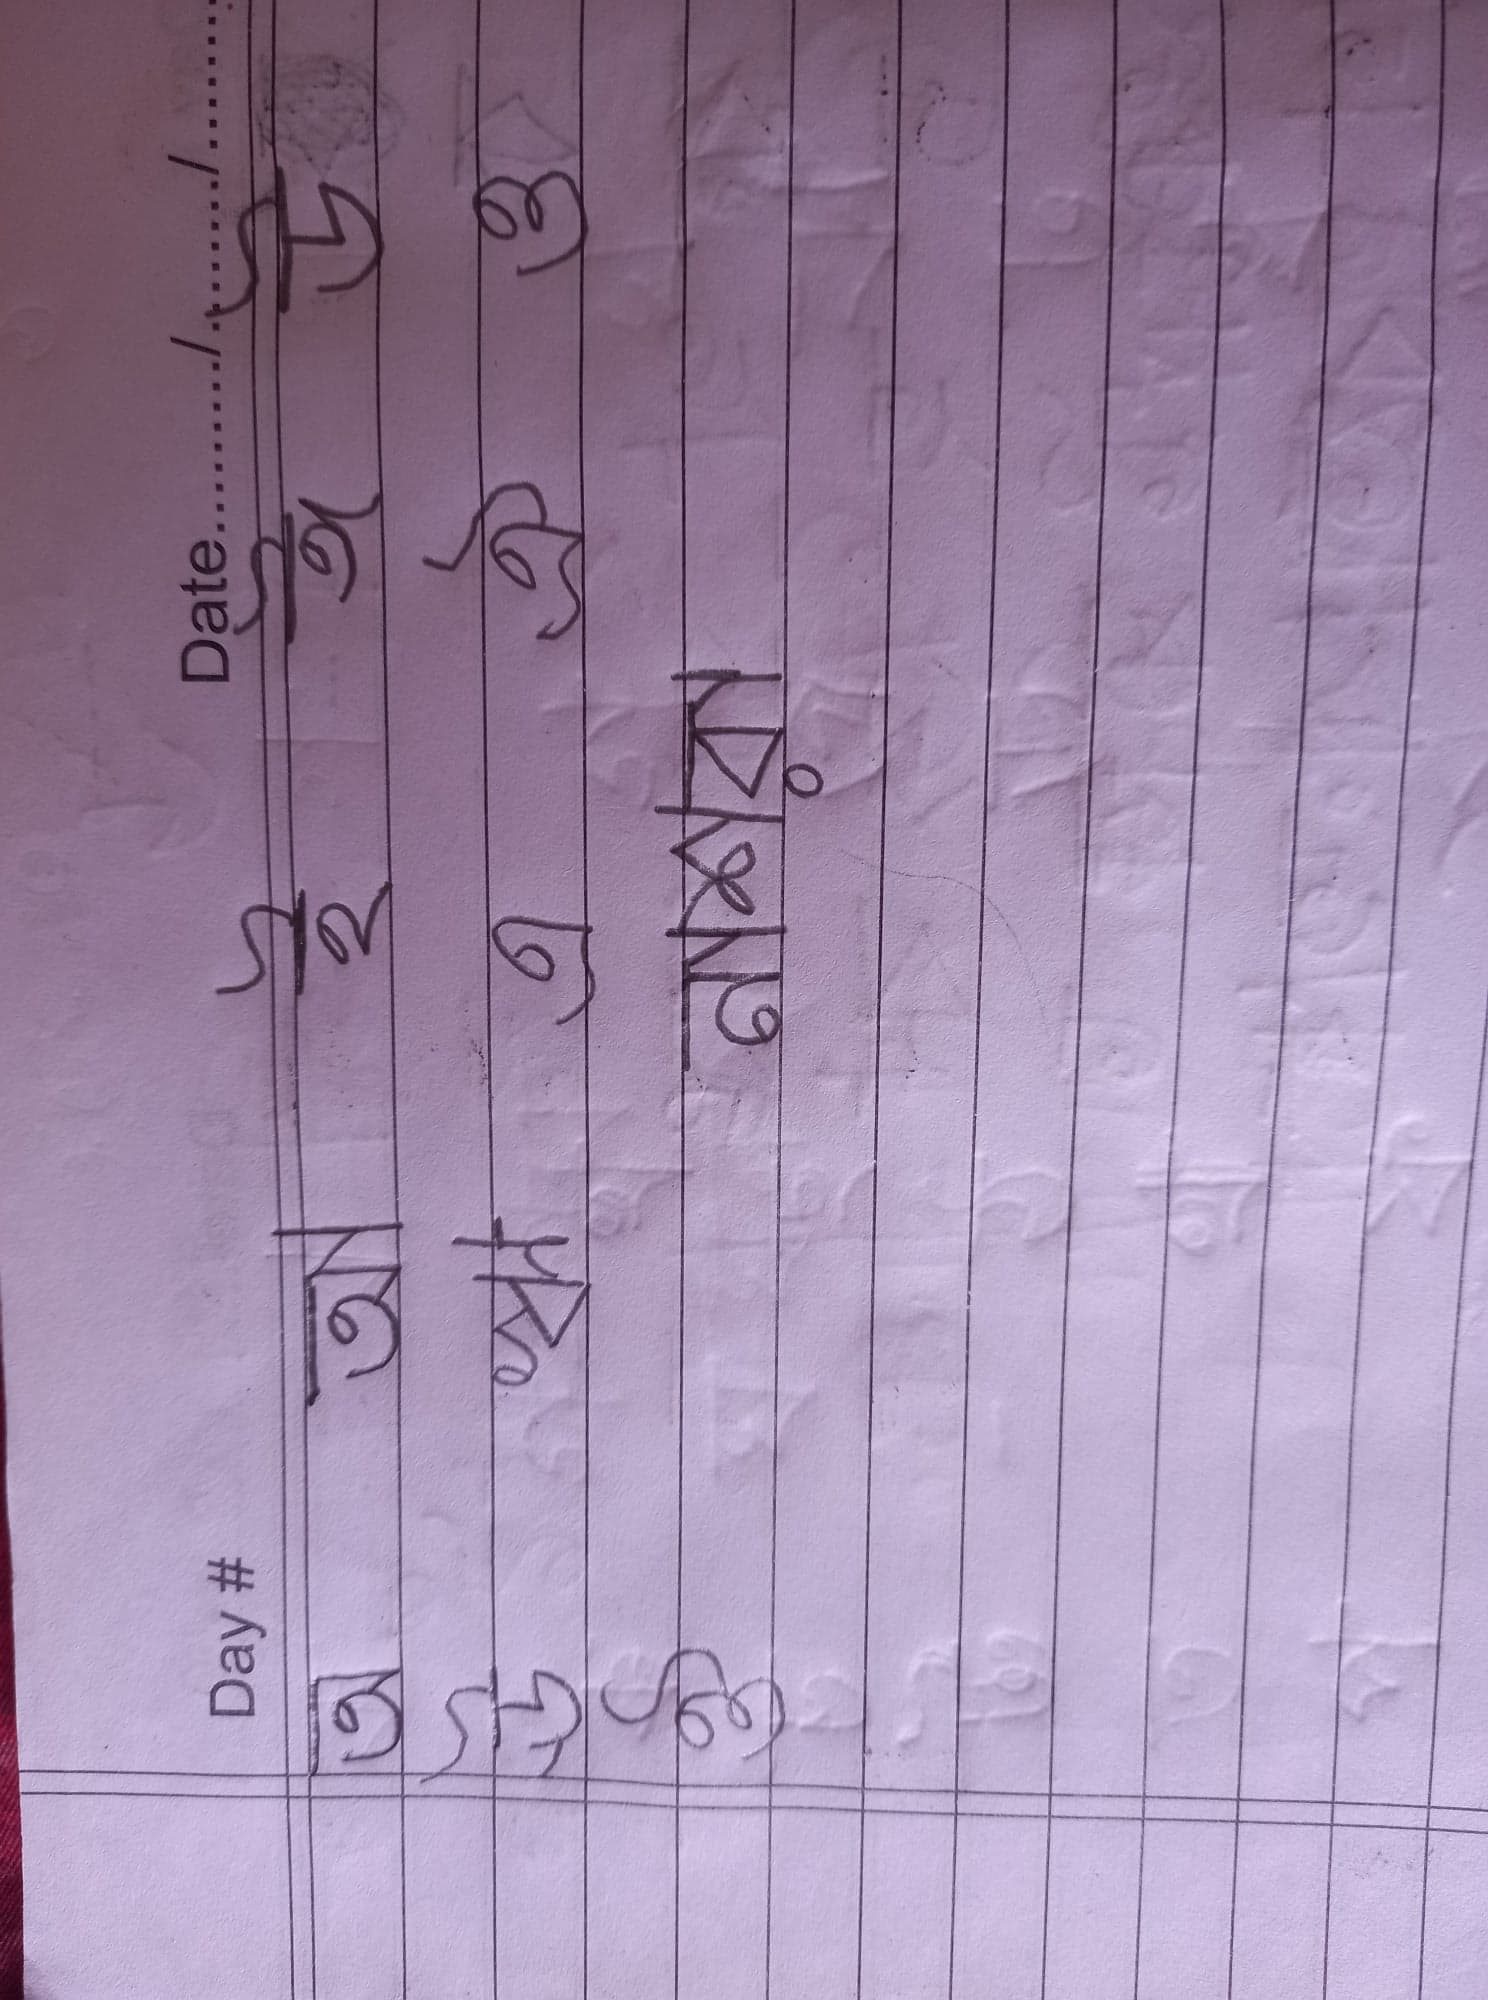 Day # Date......../......../........
অ আ ই ঈ উ
ঊ ঋ এ ঐ ও
ঔ